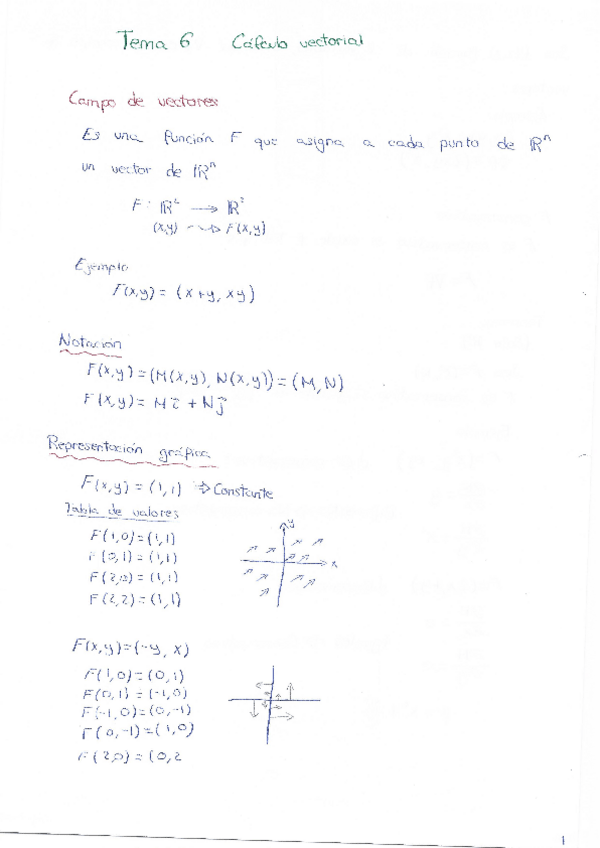 Tema 6 Cálculo vectorial
Campo de vectores
Es una función F que asigna a cada punto de ℝⁿ
un vector de ℝⁿ
F: ℝ² → ℝ²
(x,y) ⇢ F(x,y)
Ejemplo
F(x,y) = (x+y, xy)
Notación
F(x,y) = (M(x,y), N(x,y)) = (M, N)
F(x,y) = Mi⃗ + Nj⃗
Representación gráfica
F(x,y) = (1,1) ⇒ Constante
Tabla de valores
F(1,0) = (1,1)
F(0,1) = (1,1)
F(2,0) = (1,1)
F(2,2) = (1,1)
y
x
F(x,y) = (-y, x)
F(1,0) = (0,1)
F(0,1) = (-1,0)
F(-1,0) = (0,-1)
F(0,-1) = (1,0)
F(2,0) = (0,2
1